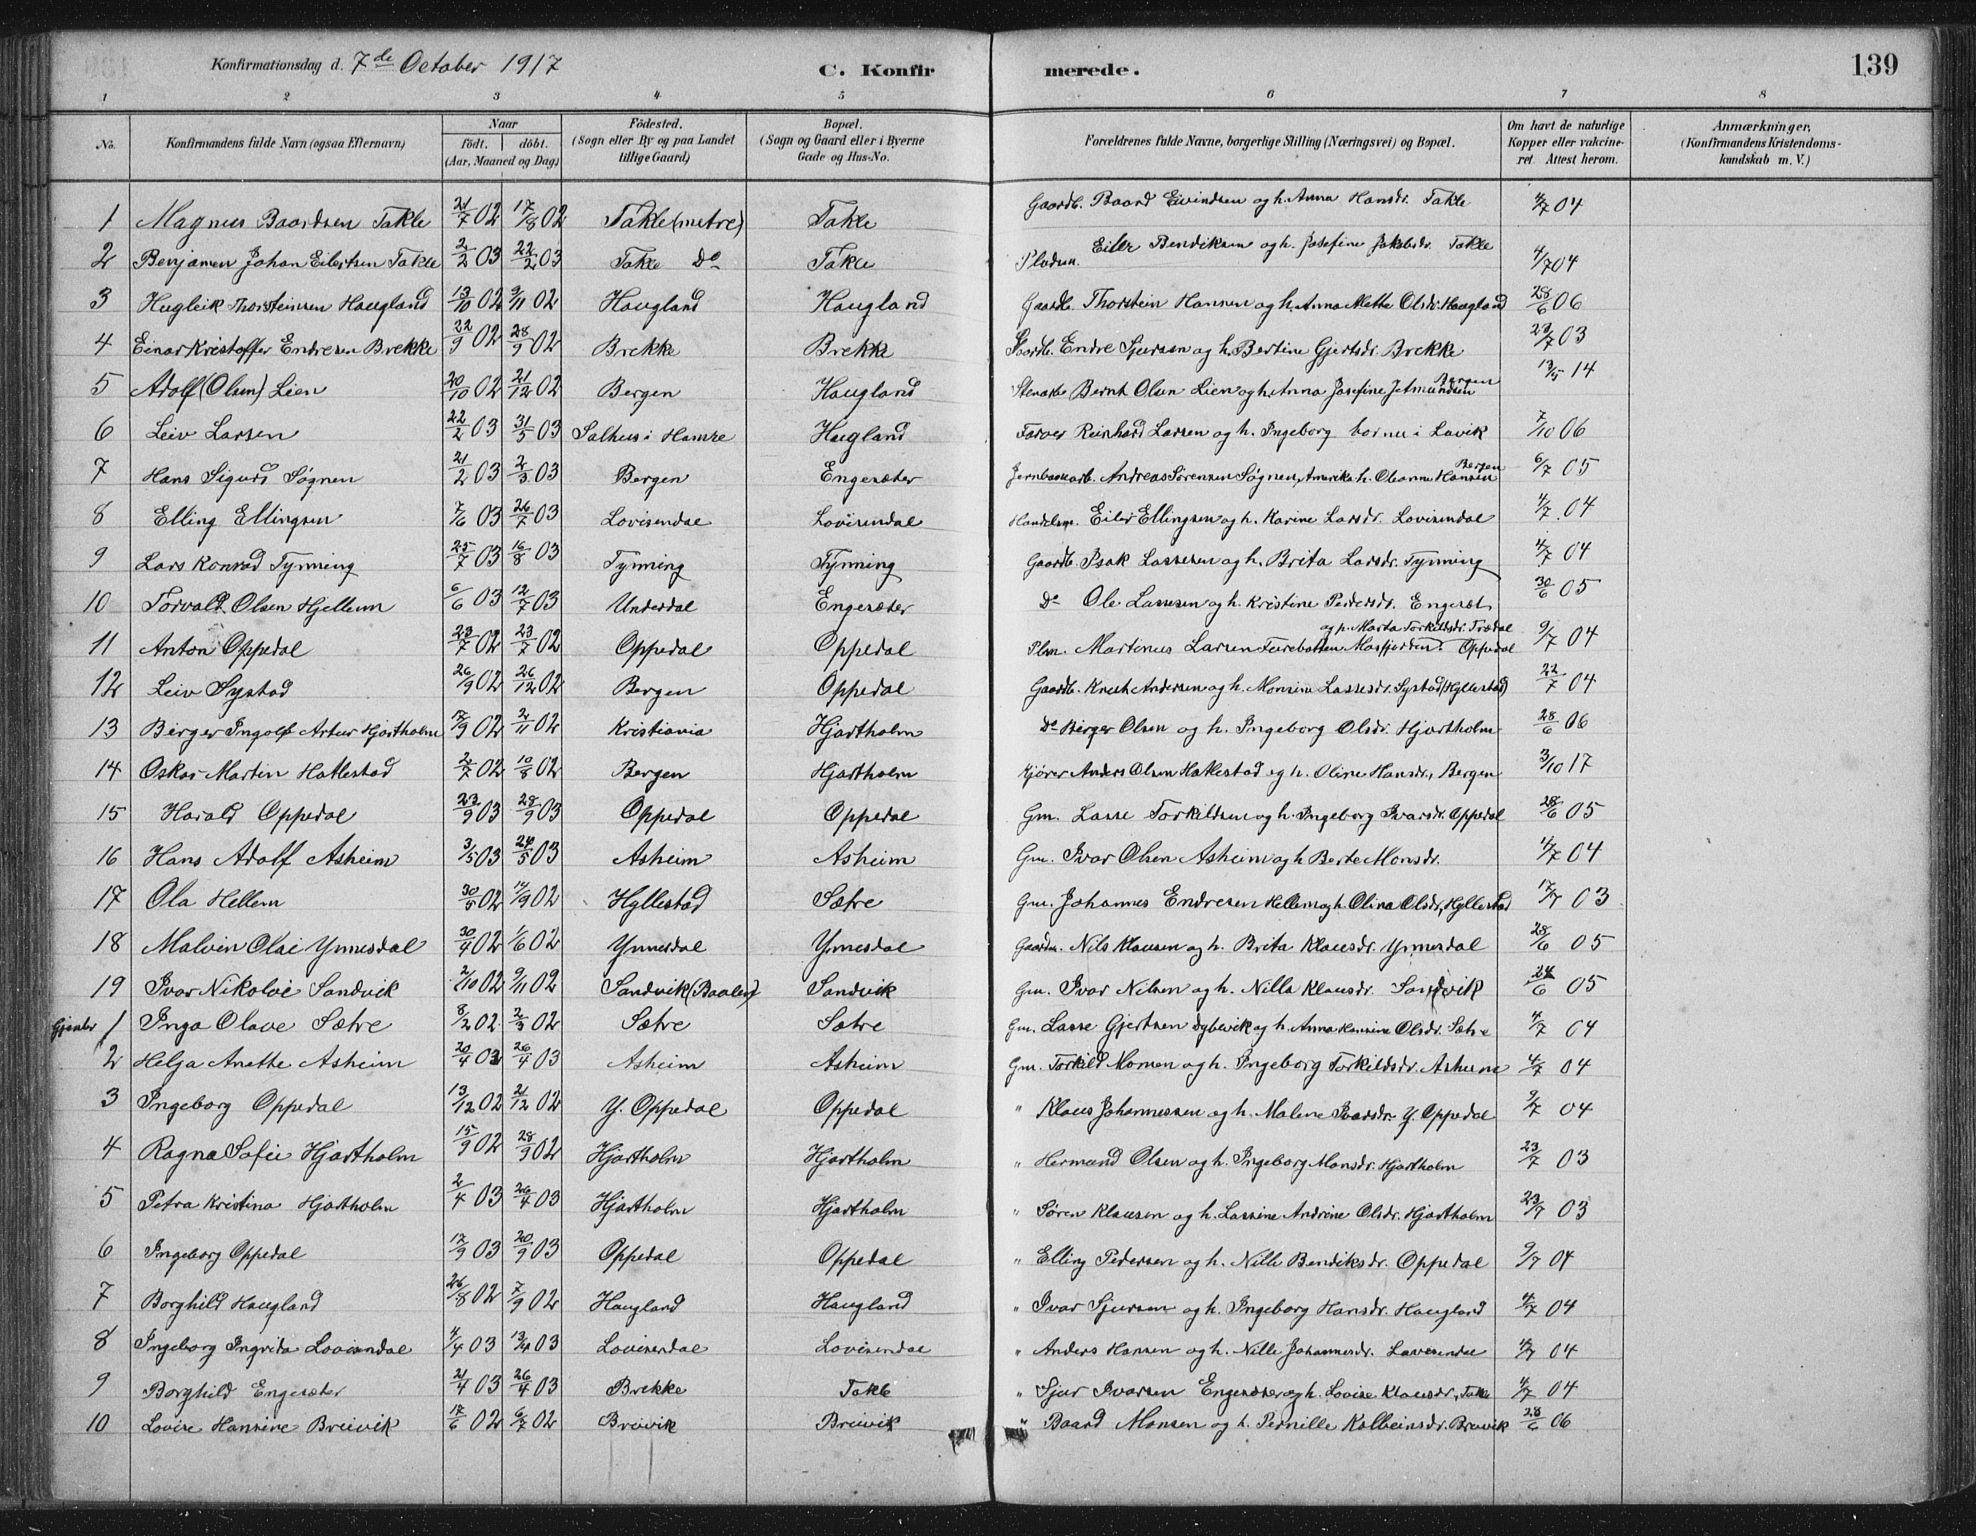 Konfirmationsdag d. 7de October 1917 C. Konfirmerede. 139
1 2 3 4 5 6 7 8
No. Konfirmandens fulde Navn (ogsaa Efternavn) Naar født. døbt. (Aar, Maaned og Dag) Födested. (Sogn eller By og paa Landet tillige Gaard) Bopæl. (Sogn og Gaard eller i Byerne Gade og Hus-No. Forældrenes fulde Navne, borgerlige Stilling (Næringsvei) og Bopæl. Om havt de naturlige Kopper eller vakcineret. Attest herom. Anmærkninger, (Konfirmandens Kristendomskundskab m. V.)
1 Magnus Baardsen Takle 21/7 02 17/8 02 Takle (metre) Takle Gaardb. Baard Eivindsen og h. Anna Hansdr. Takle 4/7 04
2 Benjamen Johan Eilertsen Takle 2/2 03 22/2 03 Takle Do Takle Pladsm. Eiler Bendiksen og h. Josefine Jakobsdr. Takle 4/7 04
3 Hugleik Thorsteinsen Haugland 13/10 02 9/11 02 Haugland Haugland Gaardb. Thorstein Hansen og h. Anna Mette Olsdr. Haugland 28/6 06
4 Einar Kristoffer Endresen Brekke 22/9 02 28/9 02 Brekke Brekke Gaardb. Endre Sjursen og h. Bertine Gjertsdr. Brekke 23/7 03
5 Adolf (Olsen) Lien 20/10 02 21/12 02 Bergen Haugland Bernt Olsen Lien og h. Anna Josefine Jetmundsen Bergen 13/5 14
6 Leiv Larsen 22/2 03 31/5 03 Salhus i Hamre Haugland Farver Reinhard Larsen og h. Ingeborg bornu i Lavik 7/10 06
7 Hans Sigurd Søgnen 21/2 03 2/3 03 Bergen Engesæter Jernbanearb. Andreas Sørensen Søgnen, Amerika h. Oleanne Hansen Bergen 6/7 05
8 Elling Ellingsen 7/6 03 26/7 03 Lovisendal Lovisendal Handelsm. Eiler Ellingsen og h. Karine Larsdr. Lovisendal 4/7 04
9 Lars Konrad Tynning 25/7 03 16/8 03 Tynning Tynning Gaardb. Isak Lassesen og h. Brita Larsdr. Tynning 4/7 04
10 Torvald Olsen Hjellem 6/6 03 12/7 03 Underdal Engesæter Do Ole Lassesen og h. Kristine Pedersdr. Engesæt 30/6 05
11 Anton Oppedal 23/7 02 23/7 02 Oppedal Oppedal Plsm. Martinus Larsen Furebotten Masfjorden og h. Marta Torkildsdr. Trædal Oppedal 9/7 04
12 Leiv Systad 26/9 02 26/12 02 Bergen Oppedal Gaardb. Knut Andersen og h. Monsine Lassesdr. Systad (Hyllestad) 22/7 04
13 Birger Ingolf Artur Hjartholm 17/9 02 2/11 02 Kristiania Hjartholm Do Birger Olsen og h. Ingeborg Olsdr. Hjartholm 28/6 06
14 Oskar Martin Hatlestad 2/7 02 10/8 02 Bergen Hjartholm Kjører Anders Olsen Hatlestad og h. Oline Hansdr., Bergen 3/10 17
15 Harald Oppedal 23/9 03 28/9 03 Oppedal Oppedal Gm. Lasse Torkildsen og h. Ingeborg Ivarsdr. Oppedal 28/6 05
16 Hans Adolf Asheim 3/5 03 24/5 03 Asheim Asheim Gm. Ivar Olsen Asheim og h. Berte Monsdr. 4/7 04
17 Ola Hellem 30/5 02 14/9 02 Hyllestad Sætre Gm. Johannes Endresen Hellem og h. Olina Olsdr., Hyllestad 17/7 03
18 Malvin Olai Ynnesdal 30/4 02 1/6 02 Ynnesdal Ynnesdal Gaardm. Nils Klausen og h. Brita Klausdr. Ynnesdal 28/6 05
19 Ivar Nikolai Sandvik 2/10 02 9/11 02 Sandvik (Baalen) Sandvik Gm. Ivar Nilsen og h. Nilla Klausdr. Sandvik 24/6 05
Gjenter 1 Inga Olave Sætre 8/2 02 2/3 02 Sætre Sætre Gm. Lasse Gjertsen Dybevik og h. Anna Hansine Olsdr. Sætre 4/7 04
2 Helga Anethe Asheim 20/4 03 26/4 03 Asheim Asheim Gm. Torkild Monsen og h. Ingeborg Torkildsdr. Asheim 4/7 04
3 Ingeborg Oppedal 13/12 02 21/12 02 Y. Oppedal Oppedal " Klaus Johannessen og h. Malene Ivarsdr. Y. Oppedal 9/7 04
4 Ragna Sofie Hjartholm 15/9 02 28/9 02 Hjartholm Hjartholm " Hermund Olsen og h. Ingeborg Monsdr. Hjartholm 23/7 03
5 Petra Kristina Hjartholm 2/4 03 26/4 03 Hjartholm Hjartholm " Søren Klausen og h. Lassine Andrine Olsdr. Hjartholm 23/7 03
6 Ingeborg Oppedal 17/9 03 20/9 03 Oppedal Oppedal " Elling Pedersen og h. Nille Bendiksdr. Oppedal 9/7 04
7 Borghild Haugland 26/8 02 7/9 02 Haugland Haugland " Ivar Sjursen og h. Ingeborg Hansdr. Haugland 4/7 04
8 Ingeborg Ingvida Lovisendal 4/4 03 13/4 03 Lovisendal Lovisendal " Anders Hansen og h. Nille Johannesdr. Lavesendal 4/7 04
9 Borghild Engesæter 21/4 03 26/4 03 Brekke Takle " Sjur Ivarsen Engesæter og h. Lovise Klausdr., Takle 4/7 04
10 Lovise Hansine Breivik 17/6 02 6/7 02 Breivik Breivik " Baard Monsen og h. Pernille Kolbeinsdr. Breivik 28/6 06